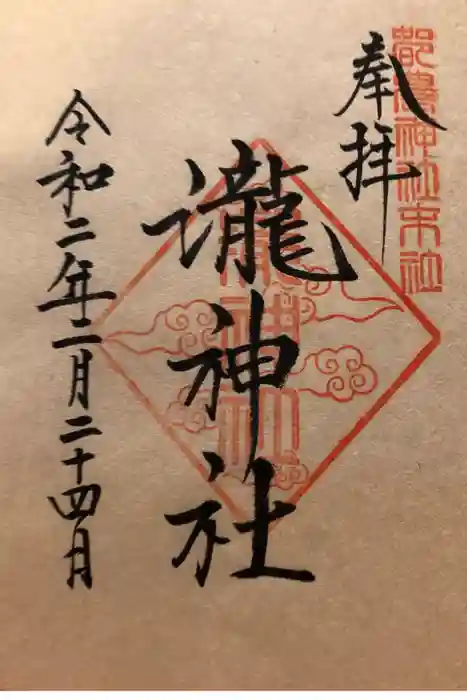 都農神社末社
奉拝
瀧神社
瀧神社
令和二年二月二十四日